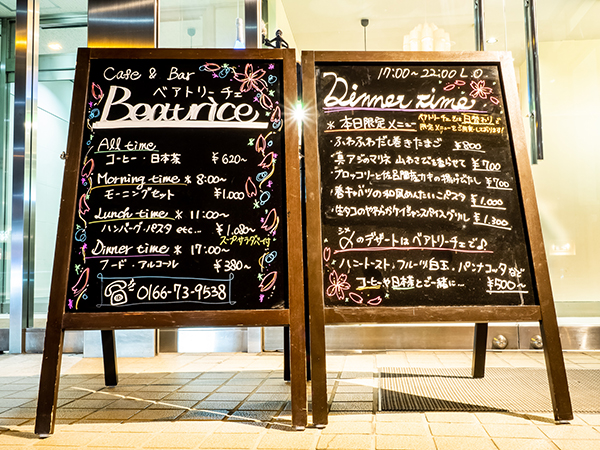 Cafe & Bar
ベアトリーチェ
Beatrice
All time
コーヒー・日本茶 ¥620～
Morning time * 8:00～
モーニングセット ¥1.000
Lunch time * 11:00～
ハンバーグ・パスタ etc... ¥1,080～
スープ・サラダ付です
Dinner time * 17:00～
フード・アルコール ¥380～
0166-73-9538
17:00～22:00 L.O
Dinner time
ベアトリーチェでは日替わり
限定メニューをご用意しております!
* 本日限定メニュー
ふわふわだし巻きたまご ¥800
真アジのマリネ 山わさびを香らせて ¥700
ブロッコリーと佐呂間産カキの揚げびたし ¥700
春キャベツの和風めんたいこパスタ ¥1.000
生タコのやわらかケイジャンスパイスグリル ¥1.300
〆のデザートはベアトリーチェで♪
シメ
・ハニートースト, フルーツ白玉, パンナコッタなど
コーヒーや日本茶とご一緒に… ¥500～